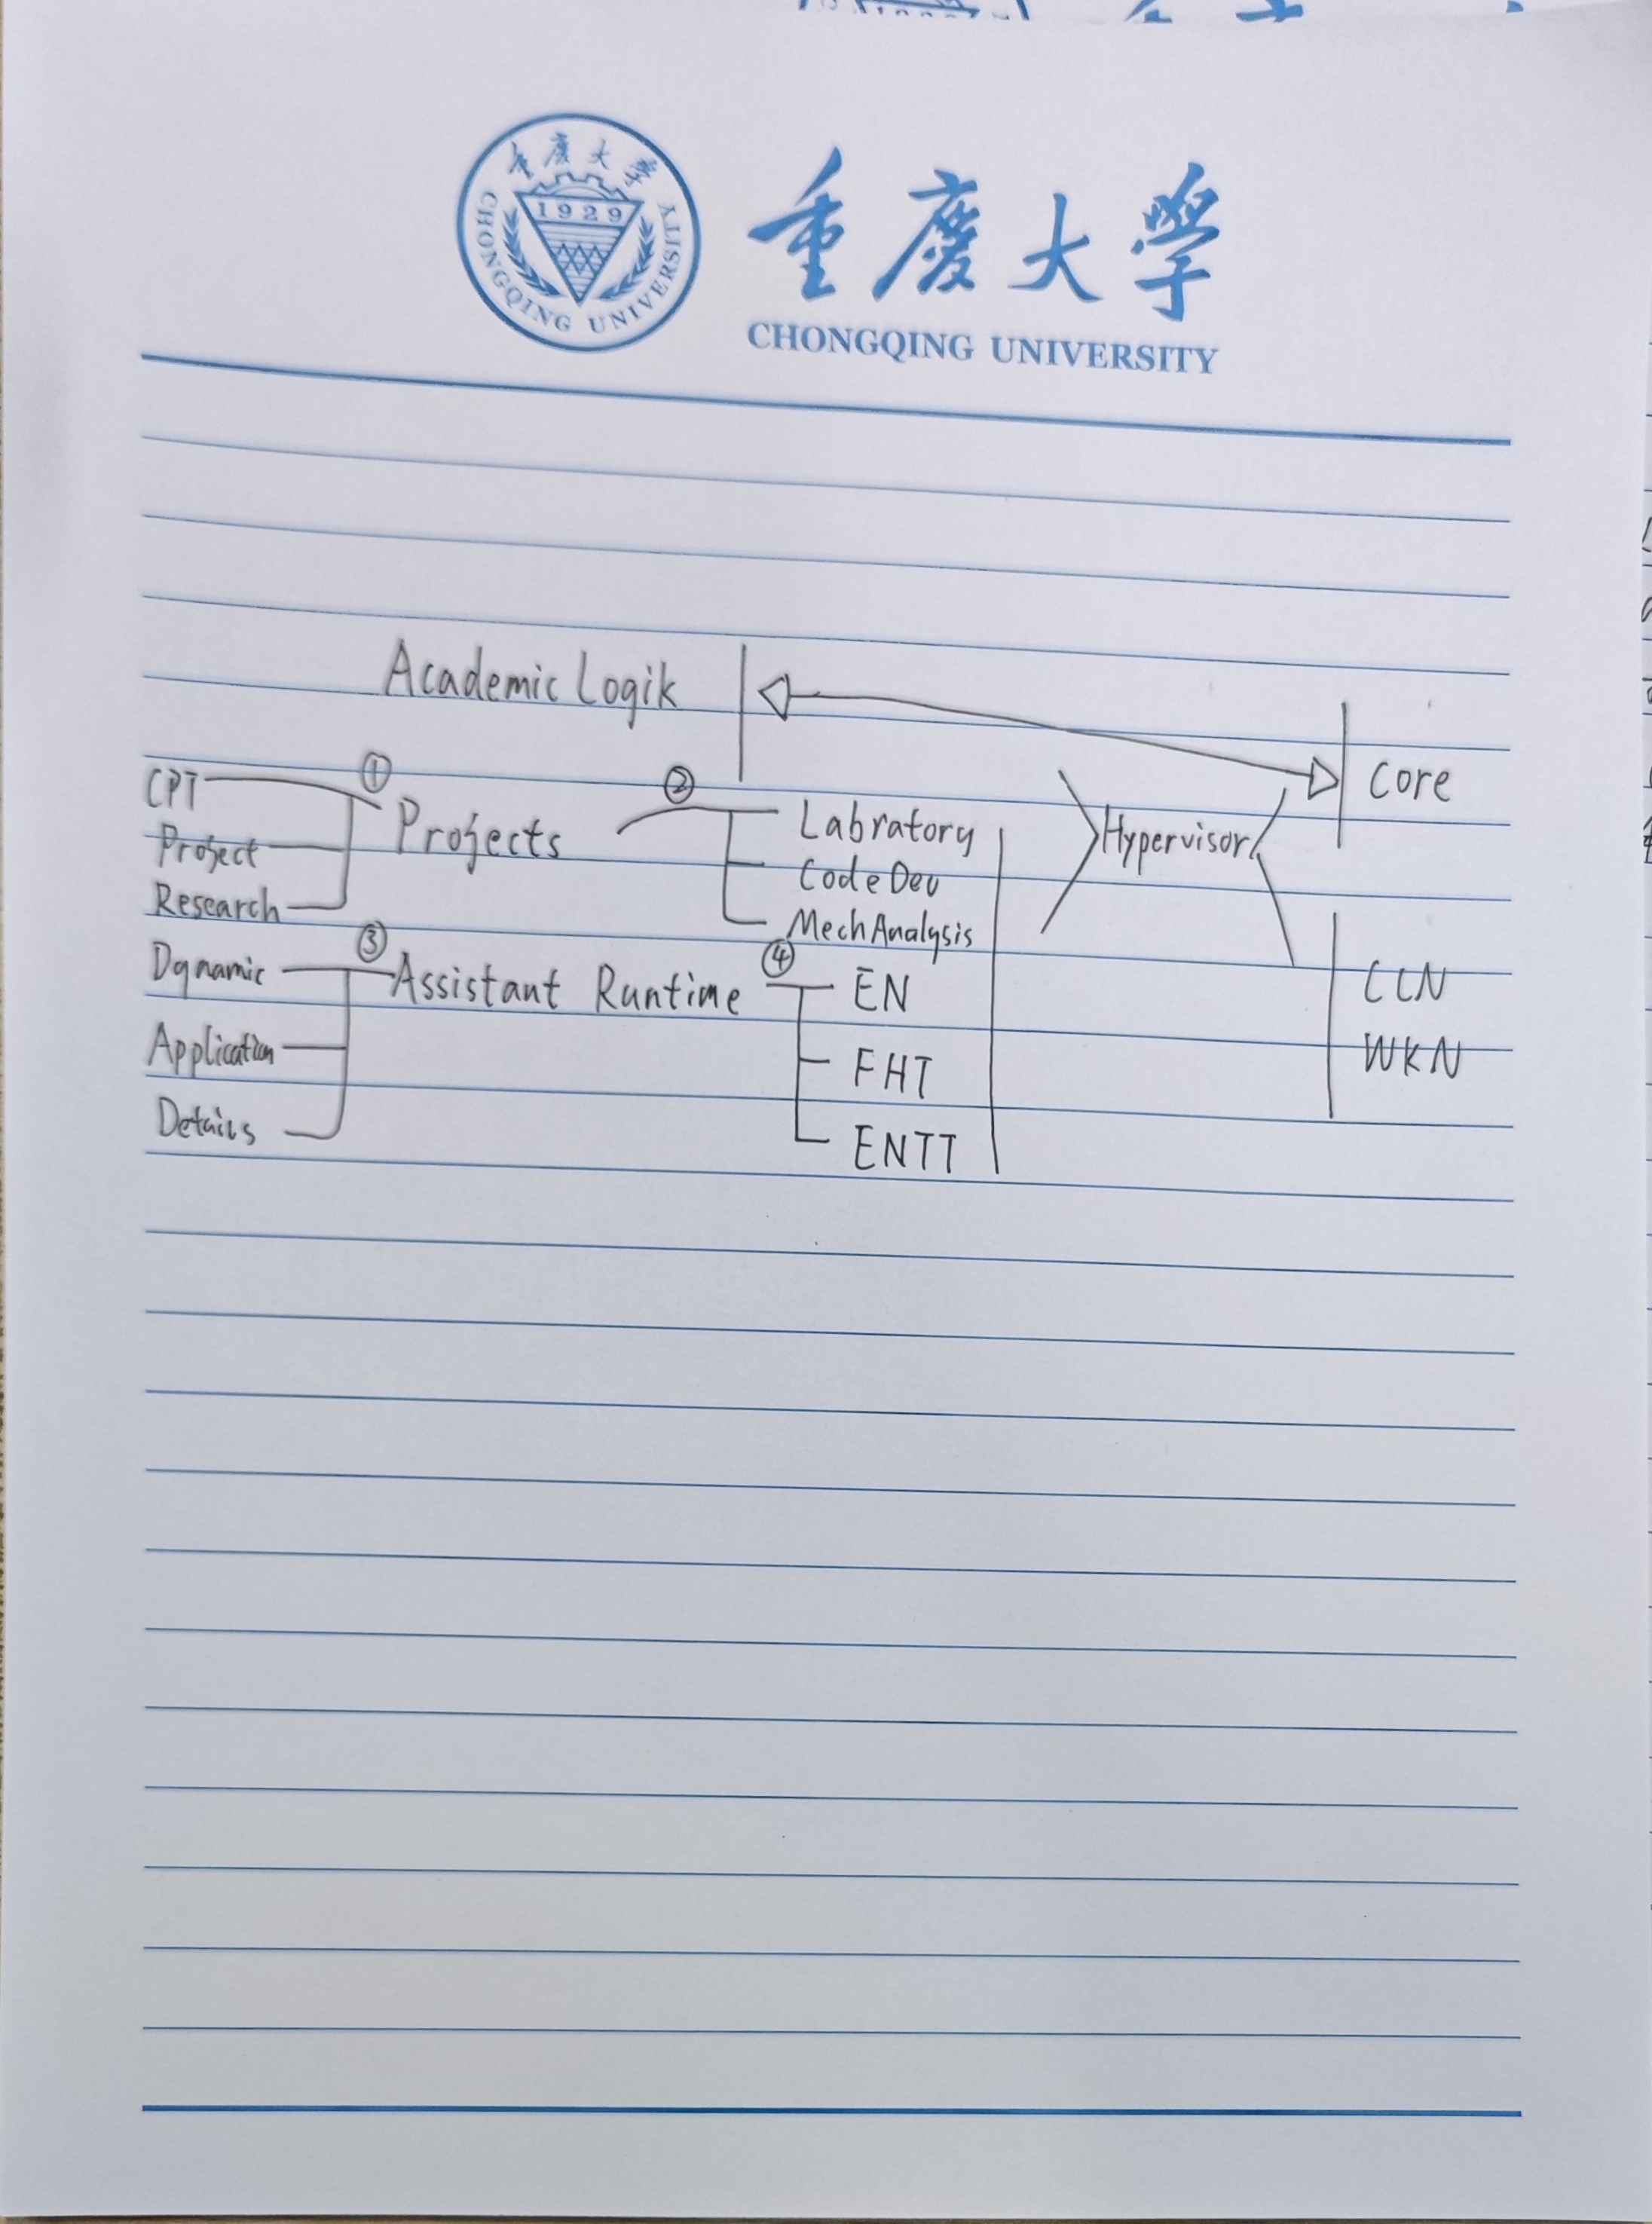 重慶大學
1929
CHONGQING UNIVERSITY
重慶大學
CHONGQING UNIVERSITY
Academic Logik
Core
CPT
Project
Research
①
Projects
②
Labratory
CodeDev
MechAnalysis
Hypervisor
Dynamic
Application
Details
③
Assistant Runtime
④
EN
FHT
ENTT
CLN
WKN